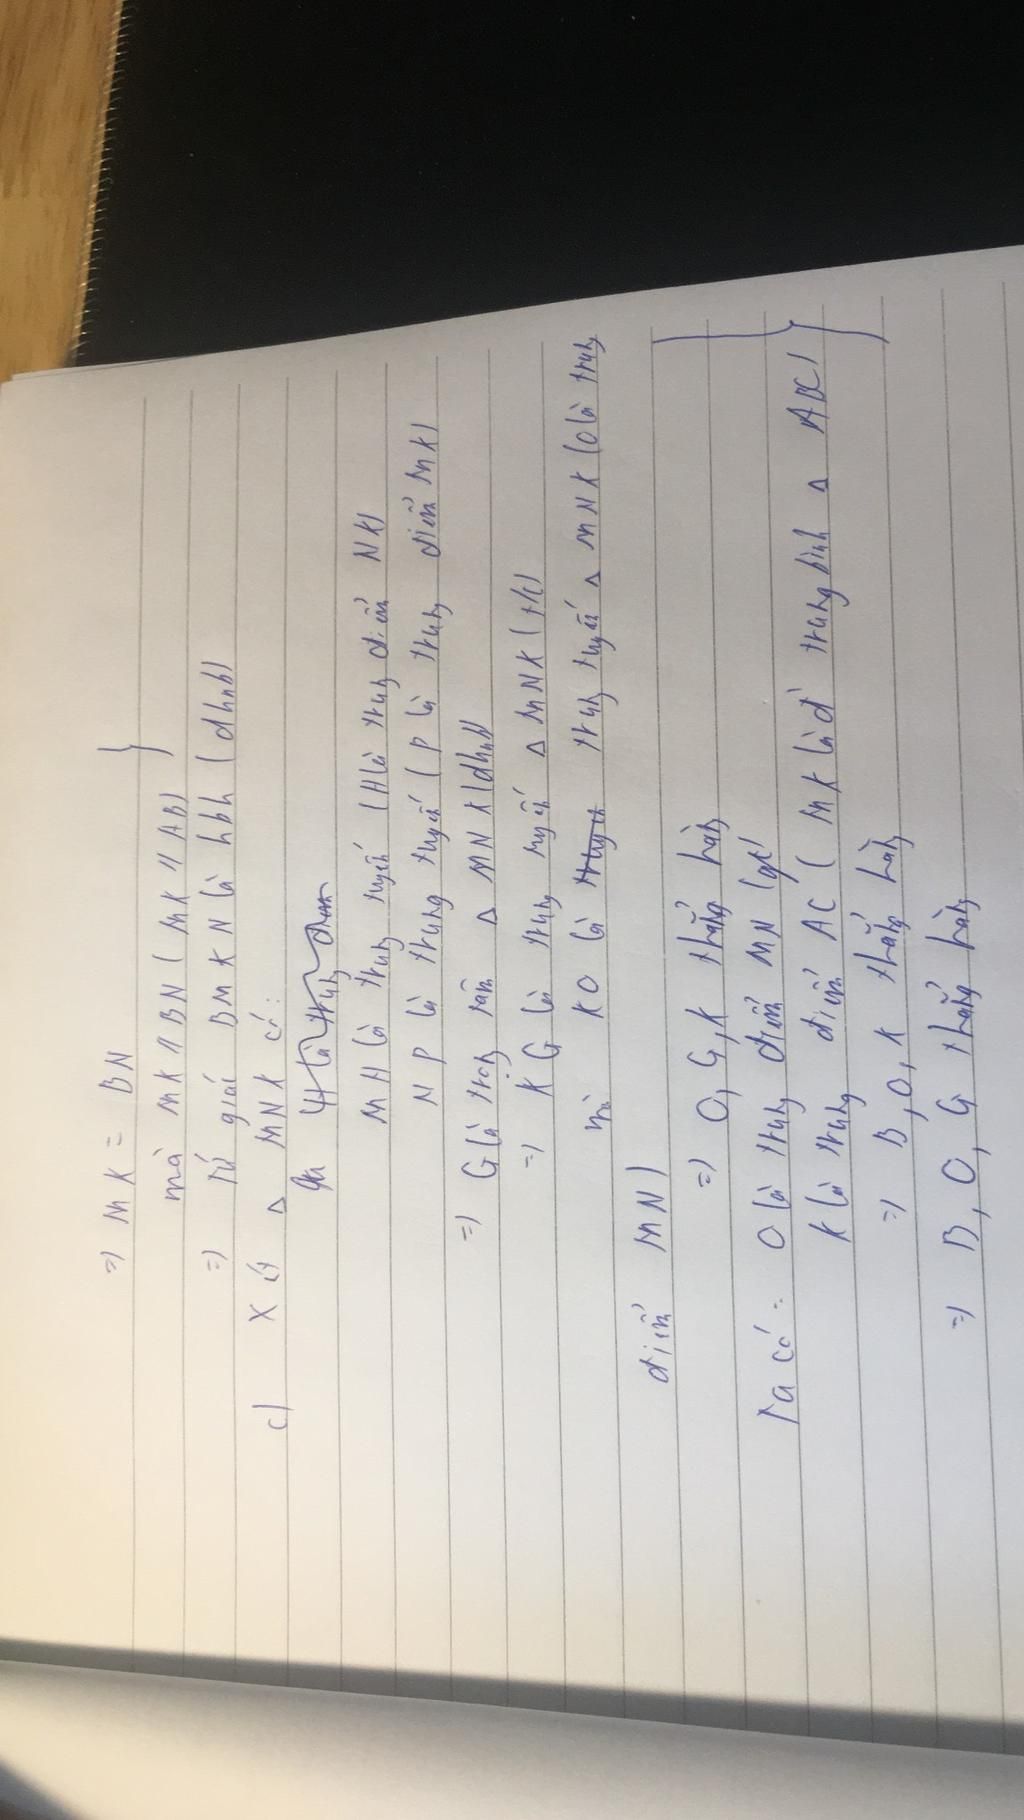 =) MK = BN
mà MK // BN ( MK // AB)
=) tứ giác BMKN là hbh (dhnb)
c) Xét Δ MNK có:
MH là trung tuyến (H là trung điểm NK)
NP là trung tuyến (P là trung điểm MK)
=) G là trọng tâm Δ MNK (dhnb)
=) KG là trung tuyến Δ MNK (t/c)
mà KO là trung tuyến Δ MNK (O là trung
điểm MN)
=) O, G, K thẳng hàng
Ta có: O là trung điểm MN (gt)
K là trung điểm AC ( MK là đ' trung bình Δ ABC)
=) B, O, K thẳng hàng
=) B, O, G thẳng hàng